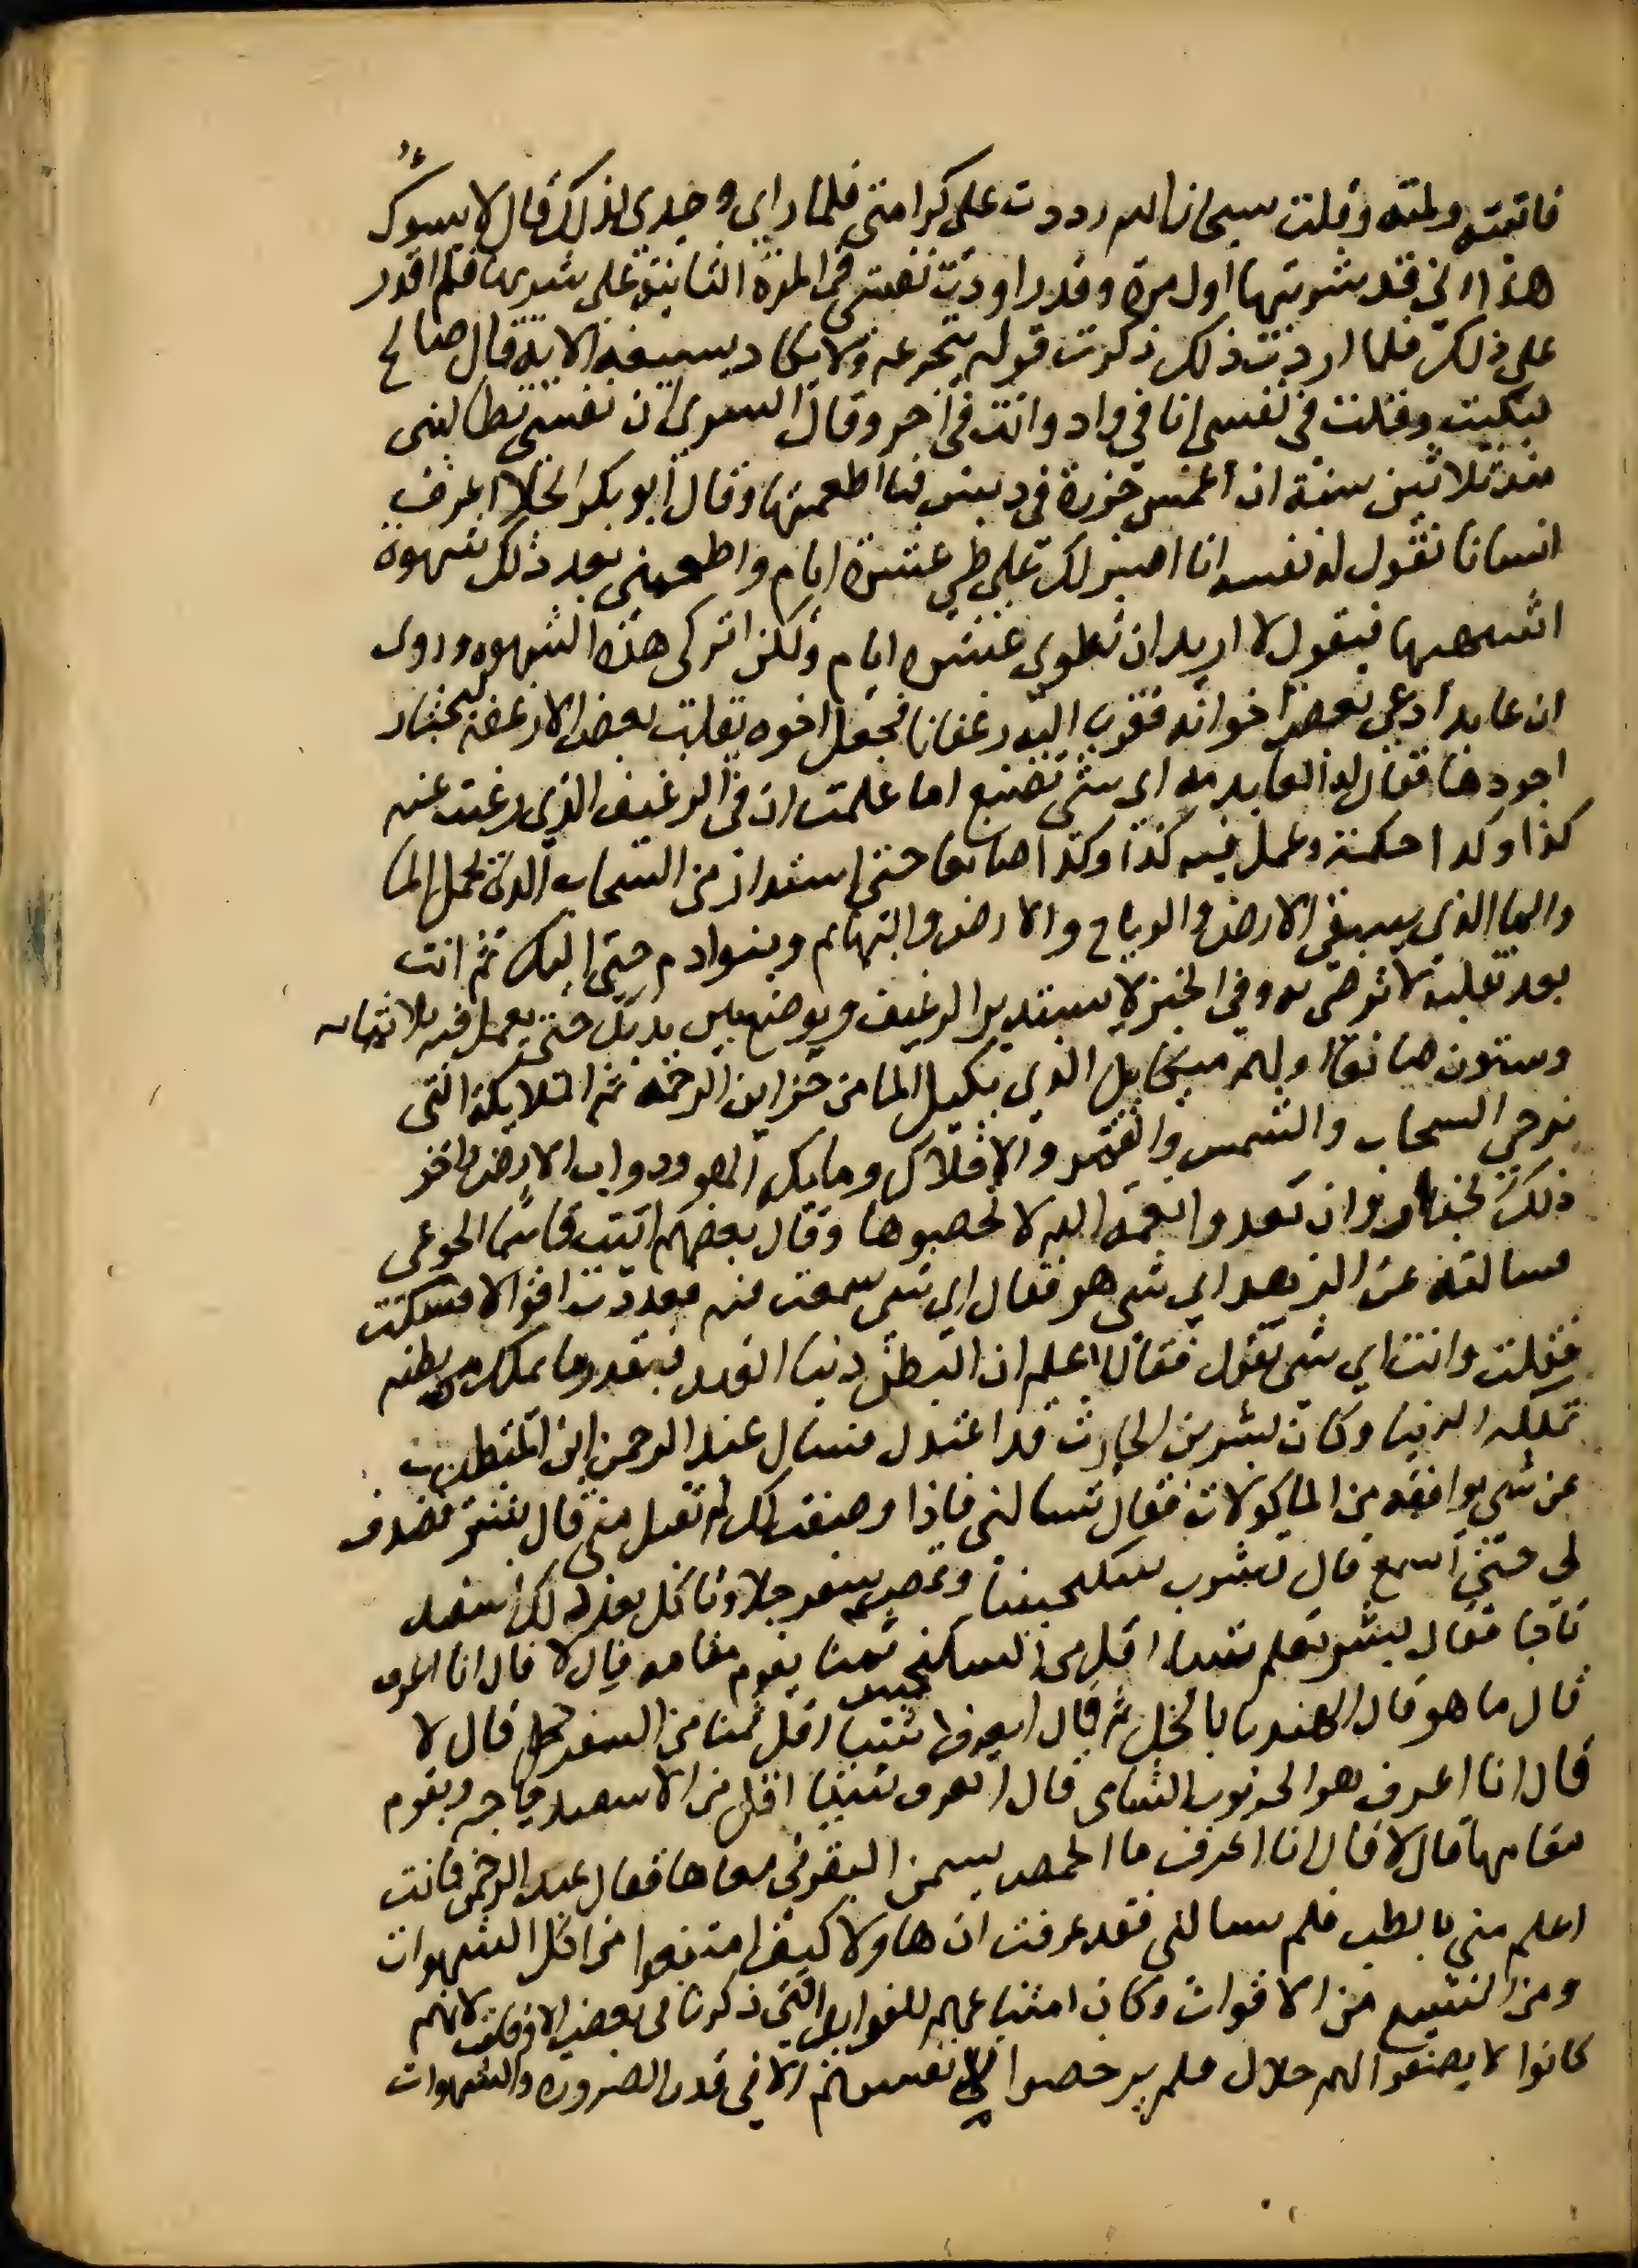 فاتيته ولمته وقلت سبحان الله رددت على كرامتي فلما راى وجدى لذلك قال لا يسوك
هذا اني قد شربتها اول مرة وقد راودت نفسى في المرة الثانية على شربها فلم اقدر
على ذلك فلما اردت ذلك ذكرت قوله يتجرعه ولا يكاد يسيغه الاية قال صالح
فبكيت وقلت في نفسى انا في واد وانت في اخر وقال السرى ان نفسى تطالبنى
منذ ثلاثين سنة ان اغمس جزرة في دبس فما اطعمتها وقال ابو بكر الجلا اعرف
انسانا تقول له نفسه انا اصبر لك على طي عشرة ايام واطعمني بعد ذلك شهوة
اشتهيها فيقول لا اريد ان تطوى عشرة ايام ولكن اتركى هذه الشهوه وروى
ان عابدا دعى بعض اخوانه فقرب اليه رغفانا فجعل اخوه يقلب بعض الارغفه ليختار
اجودها فقال له العابد مه اى شى تصنع اما علمت ان في الرغيف الذي رغبت عنه
كذا وكذا حكمة وعمل فيه كذا وكذا صانعا حتى استدار من السحاب الذى يحمل الما
والما الذي يسقى الارض والرياح والارض والبهائم وبنوادم حتى اليك ثم انت
بعد تقلبه لا ترضى به وفي الخبز لا يستدير الرغيف ويوضع بين يديك حتى يعمل فيه ثلاثمايه
وستون صانعا اولهم ميكايل الذى يكيل الما من خزاين الرحمه ثم الملايكة التى
تزجي السحاب والشمس والقمر والافلاك وملايكة الهوا ودواب الارض واخر
ذلك الخباز وان تعدوا نعمة الله لا تحصوها وقال بعضهم اتيت قاسما الجوعى
فسالته عن الزهد اي شى هو فقال اى شى سمعت فيه فعددت اقوالا فسكت
فقلت وانت اى شى تقول فقال اعلم ان البطن دنيا العبد فبقدر ما يملك من بطنه
تملكه الدنيا وكان بشر بن الحارث قد اعتدل فسال عبد الرحمن ابن المتطبب
عن شى يوافقه من الماكولات فقال تسالنى فاذا وصفت لك لم تقبل منى قال بشر فصف
لى حتى اسمع قال تشرب سكنجبينا وتمص سفرجلا وتاكل بعد ذلك اسفيد
باجا فقال بشر تعلم شيا اقل من السكنجبين ثمنا يقوم مقامه قال لا قال انا اعرف
قال ما هو قال الهندبا بالخل ثم قال اتعرف شيا اقل ثمنا من السفرجل قال لا
قال انا اعرف هو الخرنوب الشامى قال اتعرف شيا اقل من الاسفيدباجه ويقوم
مقامها قال لا قال انا اعرف ما الحمص بسمن البقر في معناها فقال عبد الرحمن فانت
اعلم منى بالطب فلم تسالنى فقد عرفت ان هاولا كيف امتنعوا من اكل الشهوات
ومن الشبع من الاقوات وكان امتناعهم للفوايد التى ذكرنا في بعض الاوقات لانهم
كانوا لا يصفوا لهم حلال فلم يرخصوا لانفسهم الا في قدر الضروره والشهوات